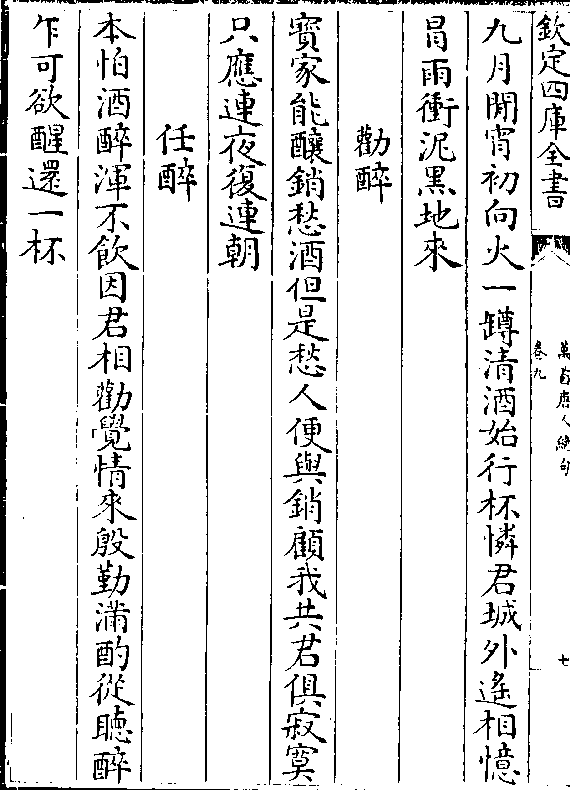 欽定四庫全書
萬首唐人絶句
卷九
七
九月閒宵初向火一罇清酒始行杯憐君城外遙相憶
冐雨衝泥黒地來
勸醉
竇家能釀銷愁酒但是愁人便與銷顧我共君俱寂寞
只應連夜復連朝
任醉
本怕酒醉渾不飲因君相勸覺情來殷勤滿酌從聽醉
乍可欲醒還一杯